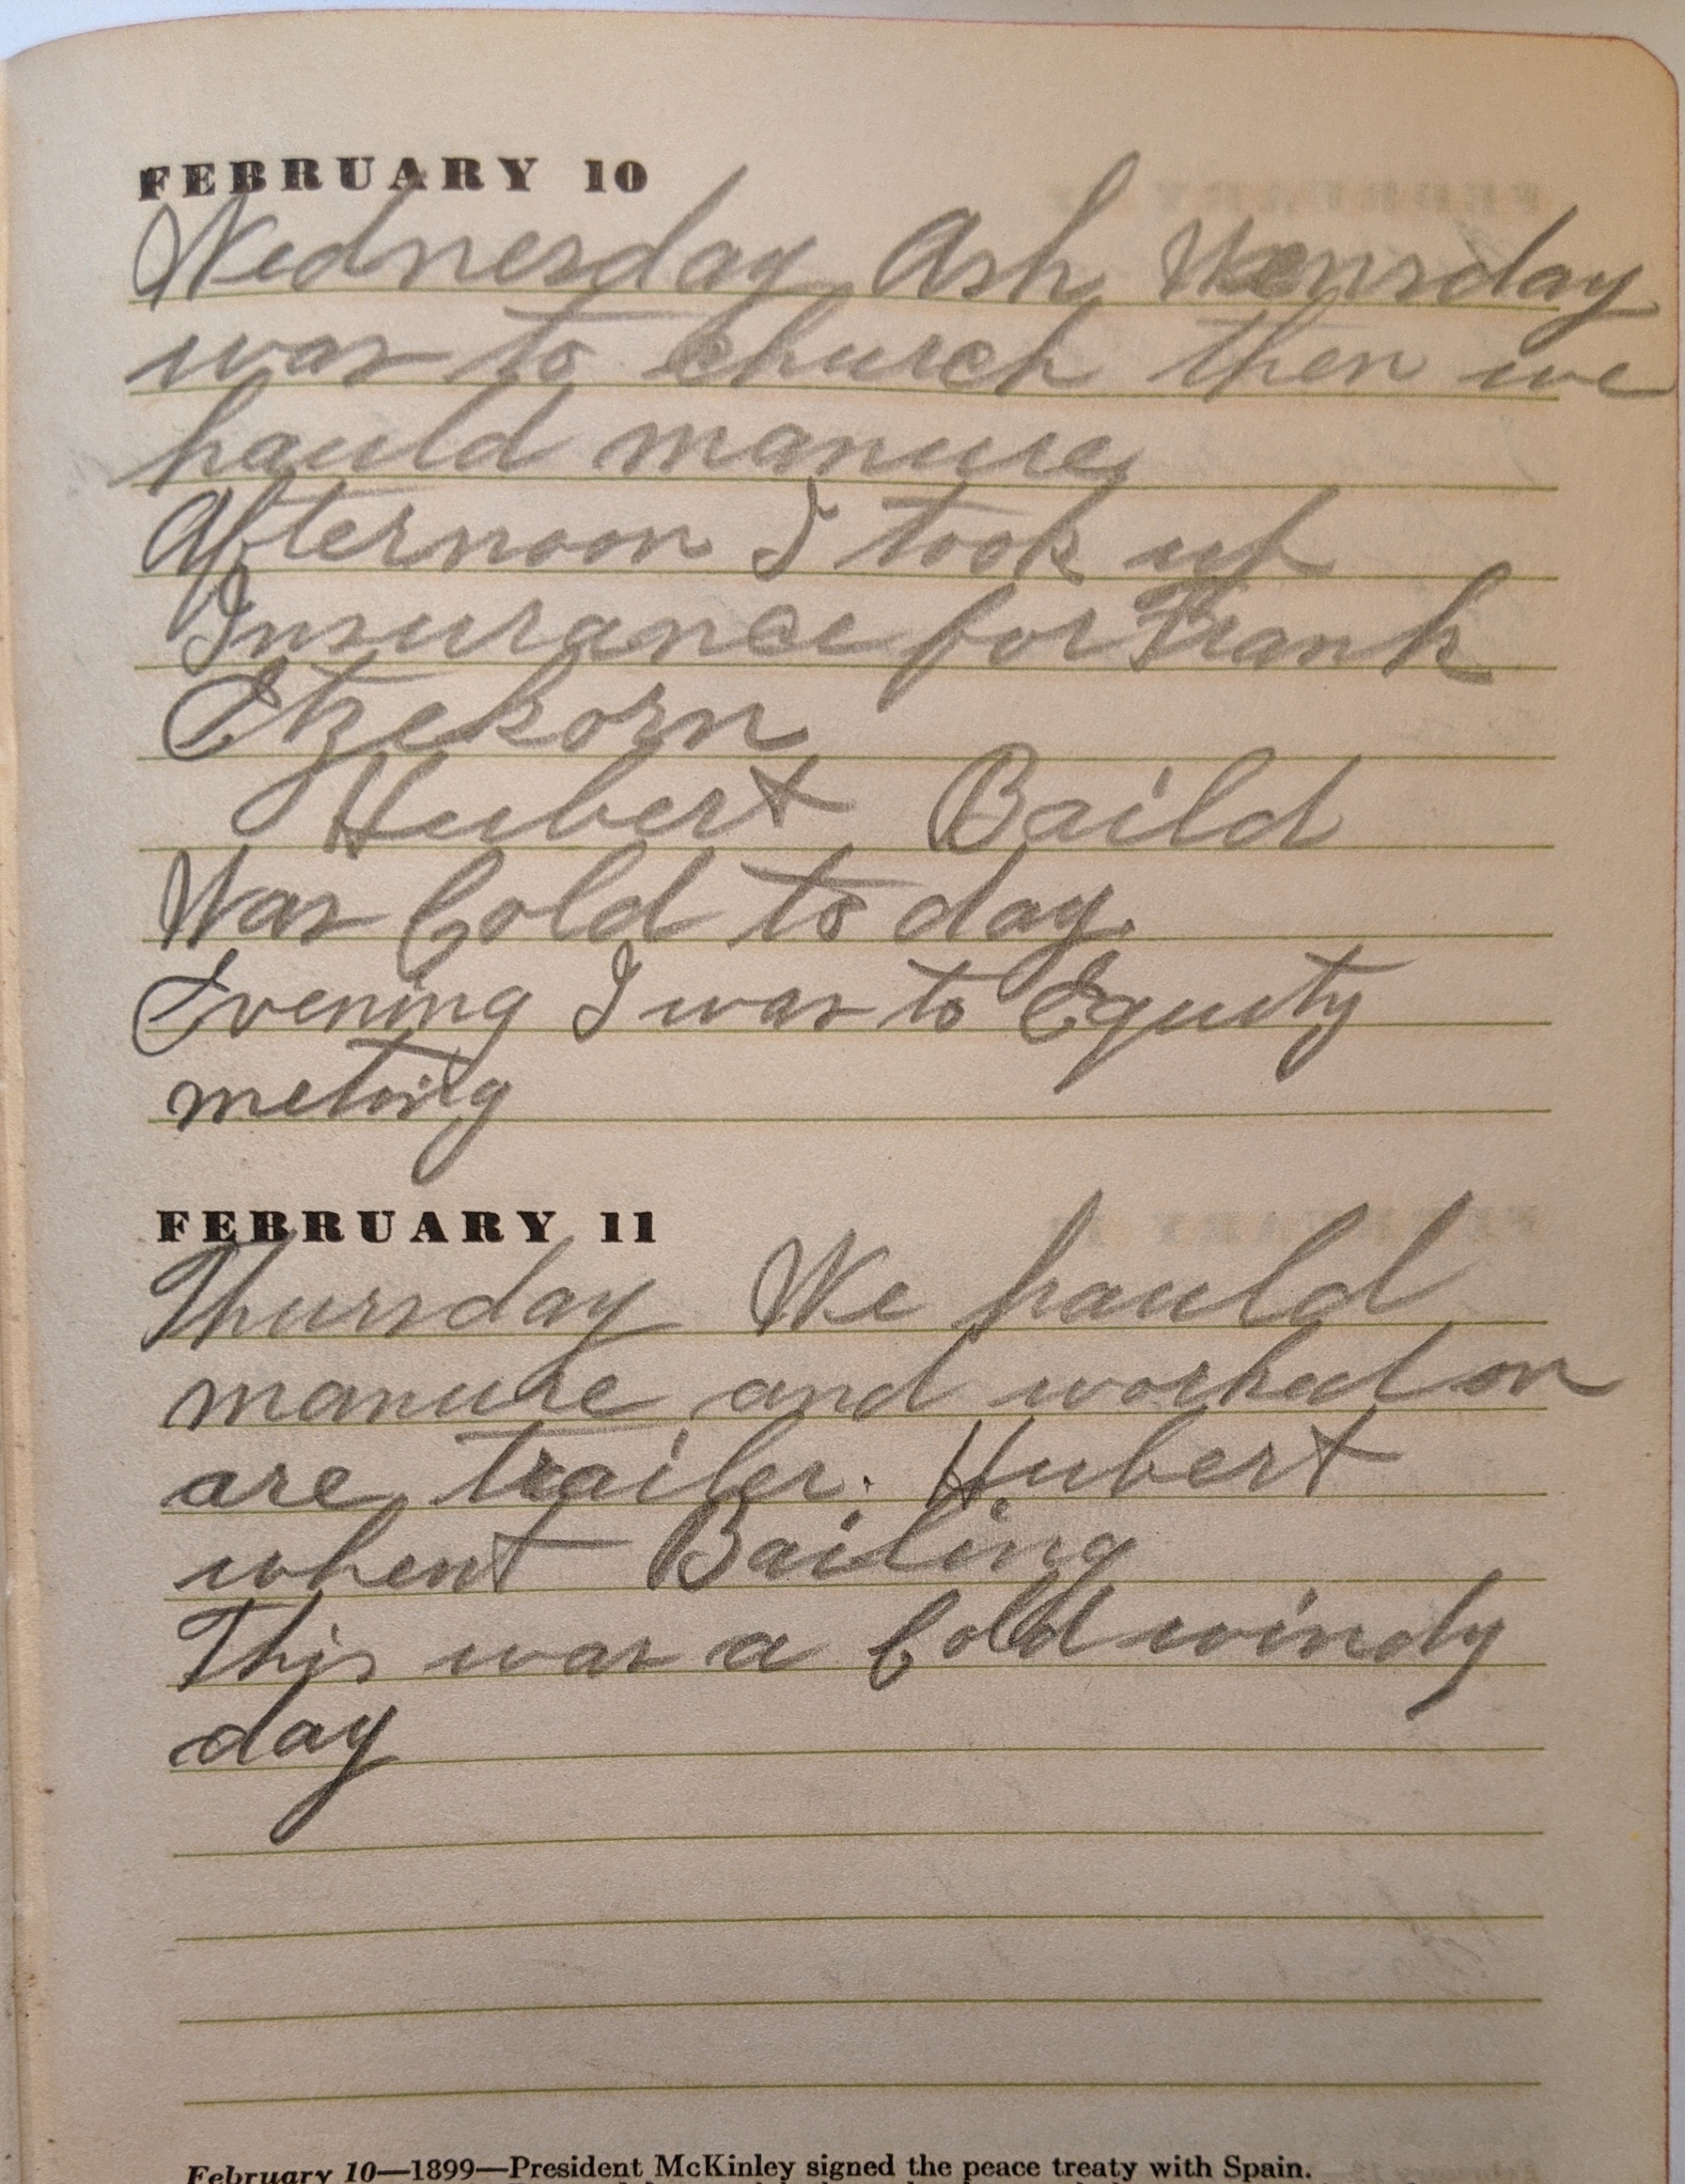 FEBRUARY 10
Wednesday Ash Wensday
was to church then we
hauld manure
Afternoon I took up
Insurance for Frank
Etzekorn
Hubert Baild
Was Cold to day.
Evening I was to Equity
meting
FEBRUARY 11
Thursday We hauld
manure and worked on
are trailer. Hubert
whent Bailing
This was a Cold windy
day
February 10—1899—President McKinley signed the peace treaty with Spain.